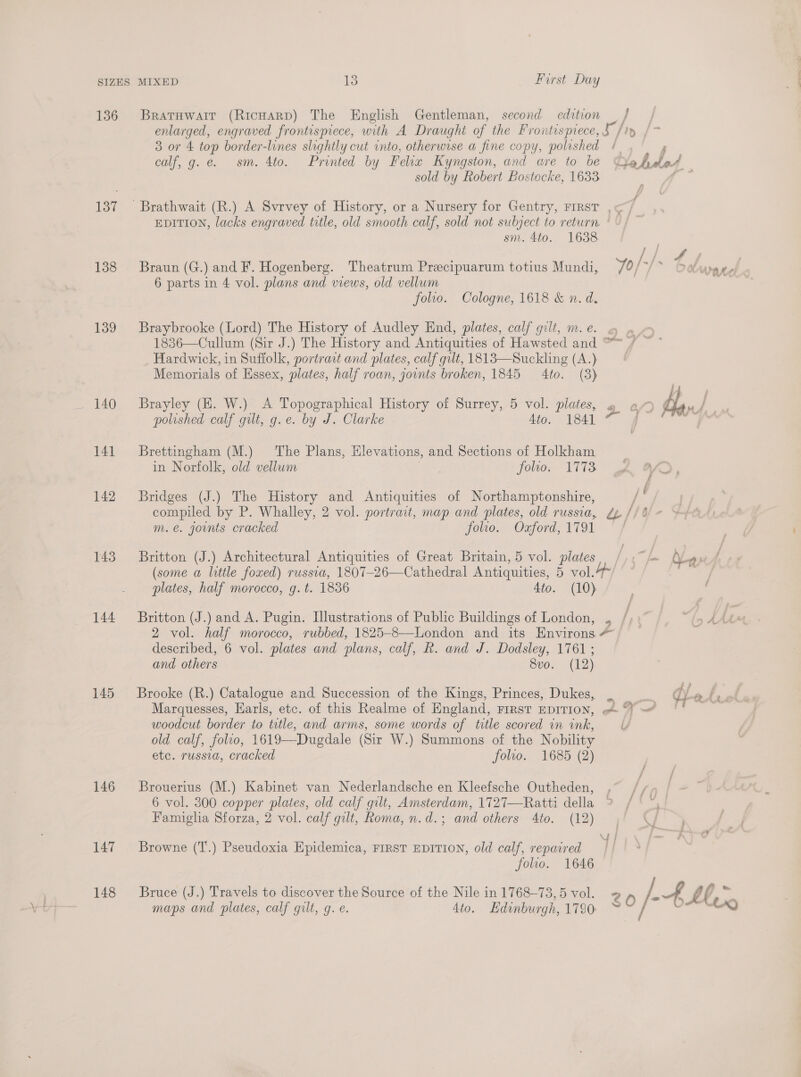 SIZES MIXED 13 First Day
136 BRATHWAIT (RICHARD) The English Gentleman, second edition
enlarged, engraved frontispiece, with A Draught of the Frontispiece,
3 or 4 top border-lines slightly cut into, otherwise a fine copy, polished
calf, g. e. sm. 4to. Printed by Felix Kyngston, and are to be
sold by Robert Bostocke, 1633
137 Brathwait (R.) A Svrvey of History, or a Nursery for Gentry, FIRST
EDITION, lacks engraved title, old smooth calf, sold not subject to return
sm. 4to. 1638
138 Braun (G.) and F. Hogenberg. Theatrum Præcipuarum totius Mundi, 70/-/-
6 parts in 4 vol. plans and views, old vellum
folio. Cologne, 1618 & n. d.
139 Braybrooke (Lord) The History of Audley End, plates, calf gilt, m. e.
1836—Cullum (Sir J.) The History and Antiquities of Hawsted and
Hardwick, in Suffolk, portrait and plates, calf gilt, 1813—Suckling (A.)
Memorials of Essex, plates, half roan, joints broken, 1845 4to. (3)
140 Brayley (E. W.) A Topographical History of Surrey, 5 vol. plates,
polished calf gilt, g. e. by J. Clarke 4to. 1841
141 Brettingham (M.) The Plans, Elevations, and Sections of Holkham
in Norfolk, old vellum folio. 1773
142 Bridges (J.) The History and Antiquities of Northamptonshire,
compiled by P. Whalley, 2 vol. portrait, map and plates, old russia,
m. e. joints cracked folio. Oxford, 1791
143 Britton (J.) Architectural Antiquities of Great Britain, 5 vol. plates
(some a little foxed) russia, 1807-26—Cathedral Antiquities, 5 vol.
plates, half morocco, g. t. 1836 4to. (10)
144 Britton (J.) and A. Pugin. Illustrations of Public Buildings of London,
2 vol. half morocco, rubbed, 1825-8—London and its Environs
described, 6 vol. plates and plans, calf, R. and J. Dodsley, 1761;
and others 8vo. (12)
145 Brooke (R.) Catalogue and Succession of the Kings, Princes, Dukes,
Marquesses, Earls, etc. of this Realme of England, FIRST EDITION,
woodcut border to title, and arms, some words of title scored in ink,
old calf, folio, 1619—Dugdale (Sir W.) Summons of the Nobility
etc. russia, cracked folio. 1685 (2)
146 Brouerius (M.) Kabinet van Nederlandsche en Kleefsche Outheden,
6 vol. 300 copper plates, old calf gilt, Amsterdam, 1727—Ratti della
Famiglia Sforza, 2 vol. calf gilt, Roma, n.d.; and others 4to. (12)
147 Browne (T.) Pseudoxia Epidemica, FIRST EDITION, old calf, repaired
folio. 1646
148 Bruce (J.) Travels to discover the Source of the Nile in 1768-73, 5 vol.
maps and plates, calf gilt, g. e. 4to. Edinburgh, 1790